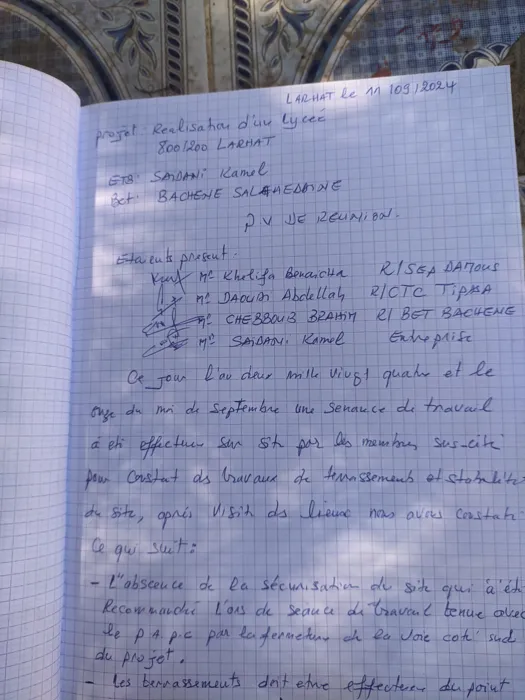 LARHAT le 11/09/2024
projet Realisation d'un Lyceé
800/200 LARHAT
ETB: SAIDANI Kamel
Bet: BACHENE SALAHEDDINE
P V DE REUNION.
Etaients présent.
Mr Khelifa Benaicha R/SEA DAMOUS
Mr DAOUDI Abdellah R/CTC TIPAZA
Mr CHEBBOUB BRAHIM R/ BET BACHENE
Mr SAIDANI Kamel Entreprise
Ce jour l'an deux mille vingt quatre et le
onze du moi de Septembre une senance de travail
à eté effectuer sur site par les membres sus-cité
pour constat ds travaux de terrassements et stabilité
du site, après visite ds lieux nous avons constaté
Ce qui suit:
- L'absence de la sécurisation du site qui à été
Recommandé Lors de seance de travail tenue avec
le P.A.P.C par la fermeture de la voie coté sud
du projet.
- Les terrassements doit etre effectuer du point